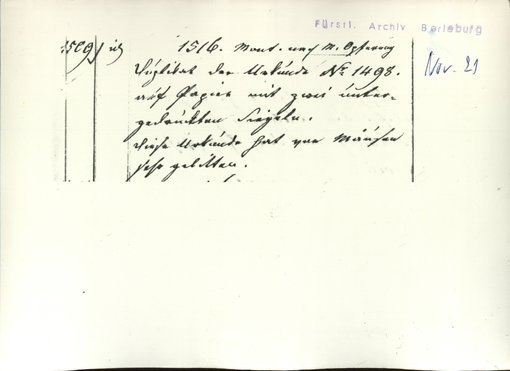 Fürstl. Archiv Berleburg
1509) id
1516. Mont. nach M. Opferung
Duplikat der Urkunde No 1498.
auf Papier mit zwei unter-
gedruckten Siegeln.
Diese Urkunde hat von Mäusen
sehr gelitten.
Nov. 21